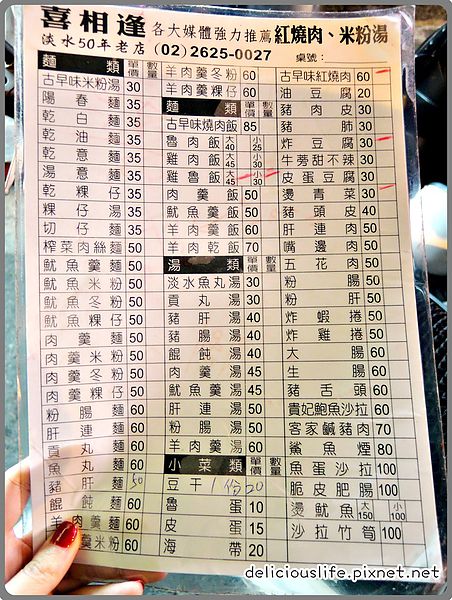 喜相逢 各大媒體強力推薦 紅燒肉、米粉湯
淡水50年老店 (02)2625-0027 桌號：
麵類 單價 數量
古早味米粉湯 30
陽春麵 35
乾白麵 35
乾油麵 35
乾意麵 35
湯意麵 35
乾粿仔 35
粿仔湯 35
切仔麵 35
榨菜肉絲麵 50
魷魚羹麵 50
魷魚米粉 50
魷魚冬粉 50
魷魚粿仔 50
肉羹麵 50
肉羹米粉 50
肉羹冬粉 50
肉羹粿仔 50
粉腸麵 60
肝連麵 60
貢丸麵 60
魚丸麵 60
豬肝麵 50
餛飩麵 60
羊肉羹麵 60
羹米粉 60
羊肉羹冬粉 60
羊肉羹粿仔 60
麵類 單價 數量
古早味燒肉飯 85
魯肉飯 大40 小25
雞肉飯 大45 小30
雞魯飯 大45 小30
肉羹飯 50
魷魚羹飯 50
羊肉羹飯 60
羊肉乾飯 70
湯類 單價 數量
淡水魚丸湯 30
貢丸湯 30
豬肝湯 40
豬腸湯 40
餛飩湯 40
肉羹湯 45
魷魚羹湯 45
肝連湯 50
粉腸湯 50
羊肉羹湯 60
小菜類 單價 數量
豆干1份 20
魯蛋 10
皮蛋 15
海帶 20
古早味紅燒肉 60
油豆腐 20
豬肉皮 30
豬肺 30
炸豆腐 30
牛蒡甜不辣 30
皮蛋豆腐 30
燙青菜 30
豬頭皮 40
肝連肉 50
嘴邊肉 50
五花肉 50
粉腸 50
粉肝 50
炸蝦捲 50
炸雞捲 50
大腸 60
生腸 60
豬舌頭 60
貴妃鮑魚沙拉 60
客家鹹豬肉 70
鯊魚煙 80
魚蛋沙拉 100
脆皮肥腸 100
燙魷魚 大150 小100
沙拉竹筍 100
deliciouslife.pixnet.net